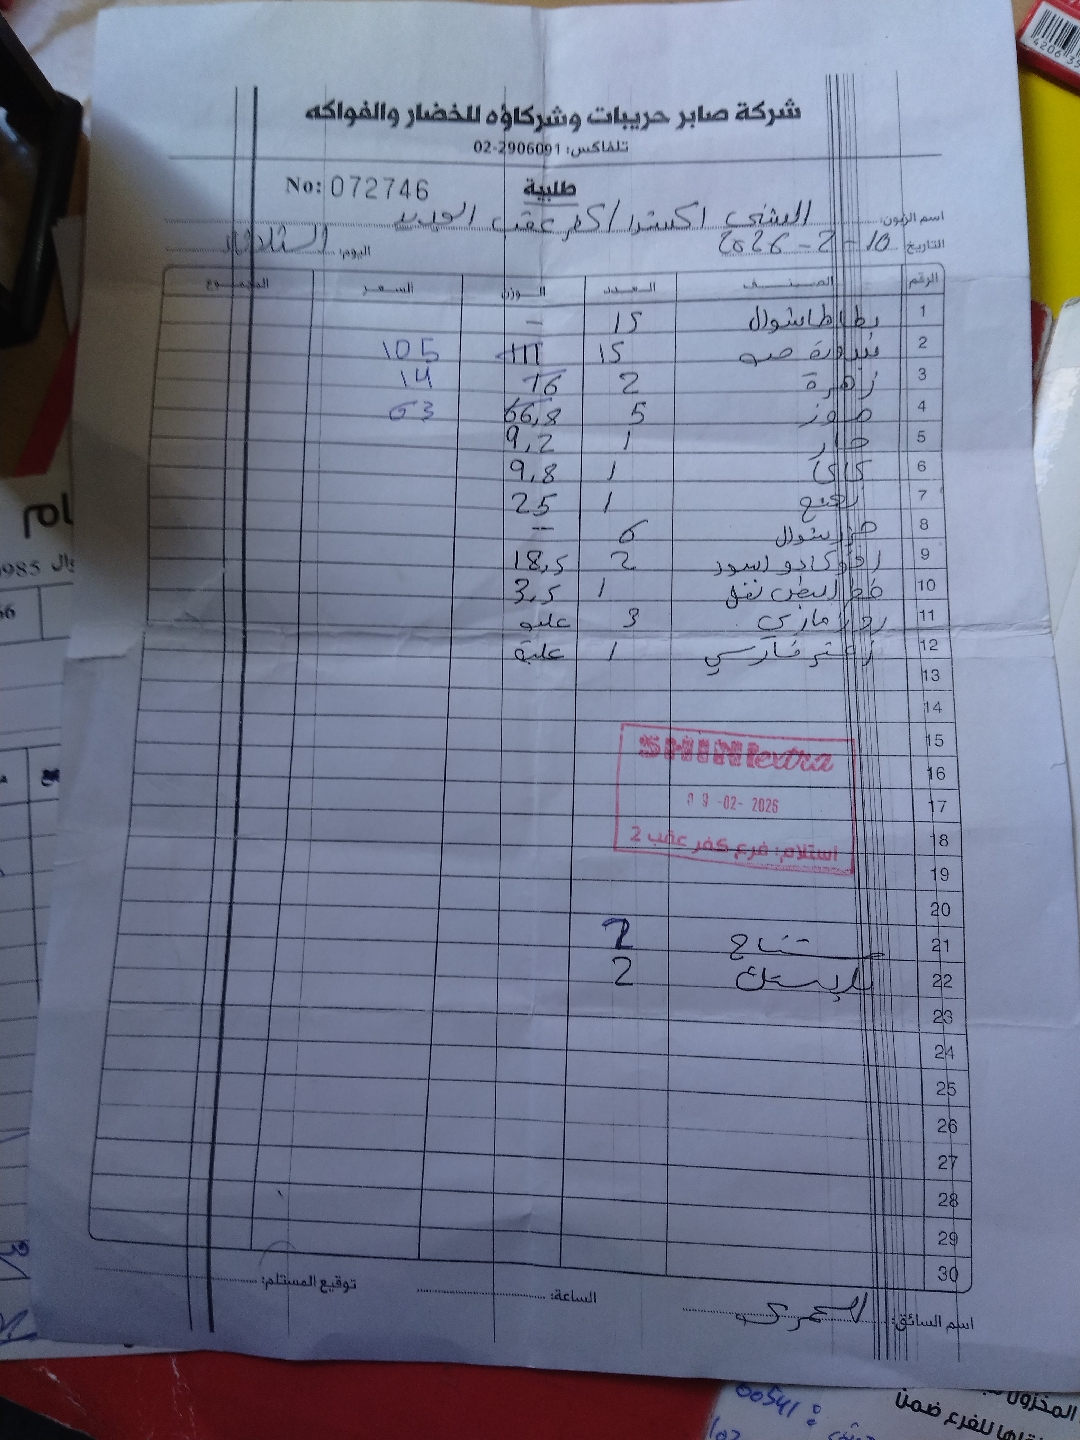 شركة صابر حريبات وشركاؤه للخضار والفواكه
تلفاكس: 02-2906091
No: 072746
طلبية
اسم الزبون: الشني اكسترا / كفر عقب الجديد
التاريخ: 10-2-2026 اليوم: الثلاثاء
الرقم الصنف العدد الوزن السعر المجموع
1 بطاطا شوال 15 –
2 بندورة 15 111 105
3 زهرة 2 16 14
4 موز 5 66,8 63
5 1 9,2
6 كاكا 1 9,8
7 1 25
8 جزر شوال 6 –
9 افوكادو اسود 2 18,5
10 فطر 1 3,5
11 روزماري 3 علبه
12 زعتر فارسي 1 علبة
13
14
15
16
17
18
19
20
SHINI extra
09-02-2026
استلام: فرع كفر عقب 2
21 2
22 بلاستك 2
23
24
25
26
27
28
29
30
اسم السائق: العمري الساعة: توقيع المستلم: